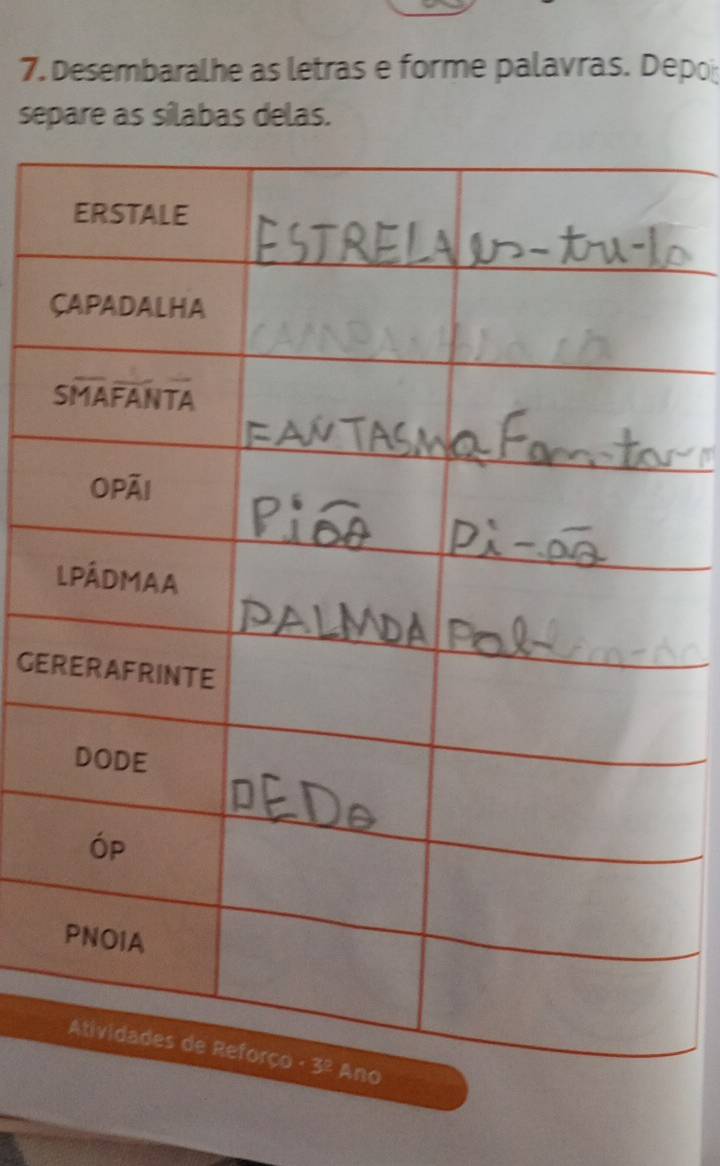 7. Desembaralhe as letras e forme palavras. Depoi
separe as sílabas delas.
ERSTALE ESTRELA es-tre-la
ÇAPADALHA
SMAFANTA FANTASMA Fan-tas-m
OPÃI Pião Pi-ão
LPÁDMAA PALMDA Pal-
GERERAFRINTE
DODE DEDO
ÓP
PNOIA
Atividades de Reforço - 3º Ano